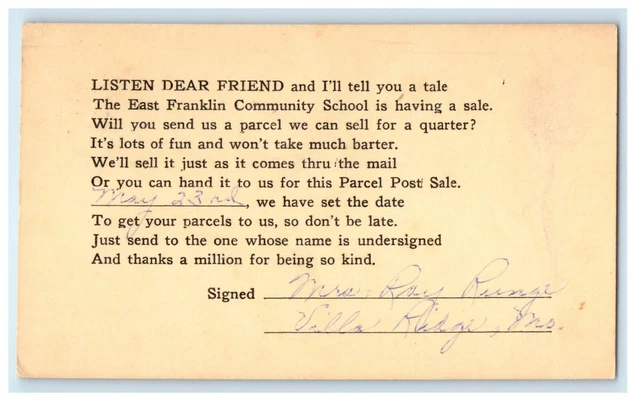 LISTEN DEAR FRIEND and I'll tell you a tale
The East Franklin Community School is having a sale.
Will you send us a parcel we can sell for a quarter?
It's lots of fun and won't take much barter.
We'll sell it just as it comes thru the mail
Or you can hand it to us for this Parcel Post Sale.
May 23rd, we have set the date
To get your parcels to us, so don't be late.
Just send to the one whose name is undersigned
And thanks a million for being so kind.
Signed Mrs. Ray Runge
Villa Ridge, Mo.